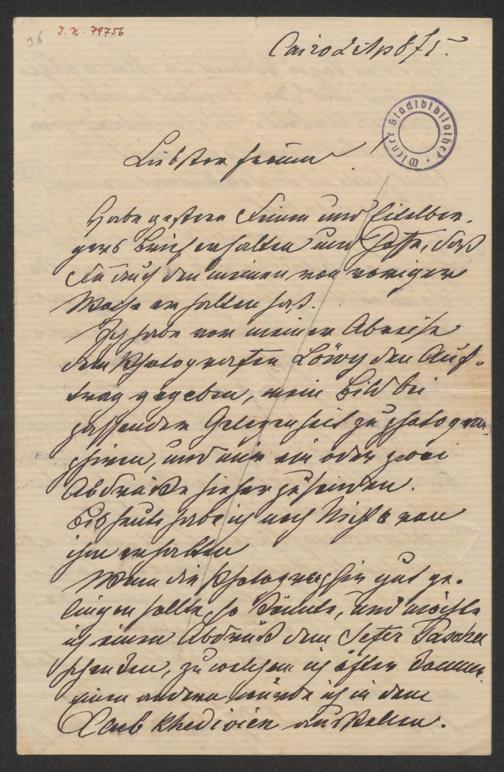 96
J. N. 79756
Cairo 2 Ap 875.
Wiener Stadtbibliothek
Liebster Freund!
Habe gestern Deinen und Eitelber-
gers Brief erhalten und hoffe, daß
Du auch den meinen von voriger
Woche erhalten hast.
Ich habe vor meiner Abreise
dem Photografen Löwy den Auf-
trag gegeben, mein Bild bei
passender Gelegenheit zu photogra-
phiren, und mir ein oder zwei
Abdrücke hieher zu senden.
Bis heute habe ich noch Nichts von
ihm erhalten
Wenn die Photographie gut ge-
lingen sollte, so könnte, und möchte
ich einen Abdruck dem Pascha
schenken, zu welchem ich öfter komme,
einen andern würde ich in dem
Club Khedivien ausstellen.